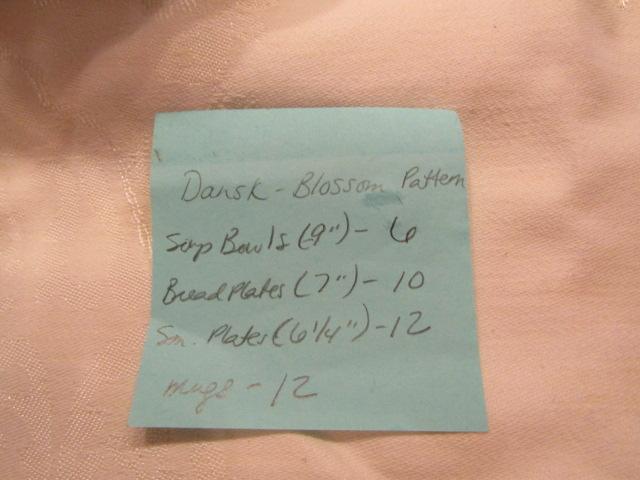 Dansk - Blossom Pattern
Soup Bowls (9") - 6
Bread Plates (7") - 10
Sm. Plates (6 1/4") - 12
mugs - 12